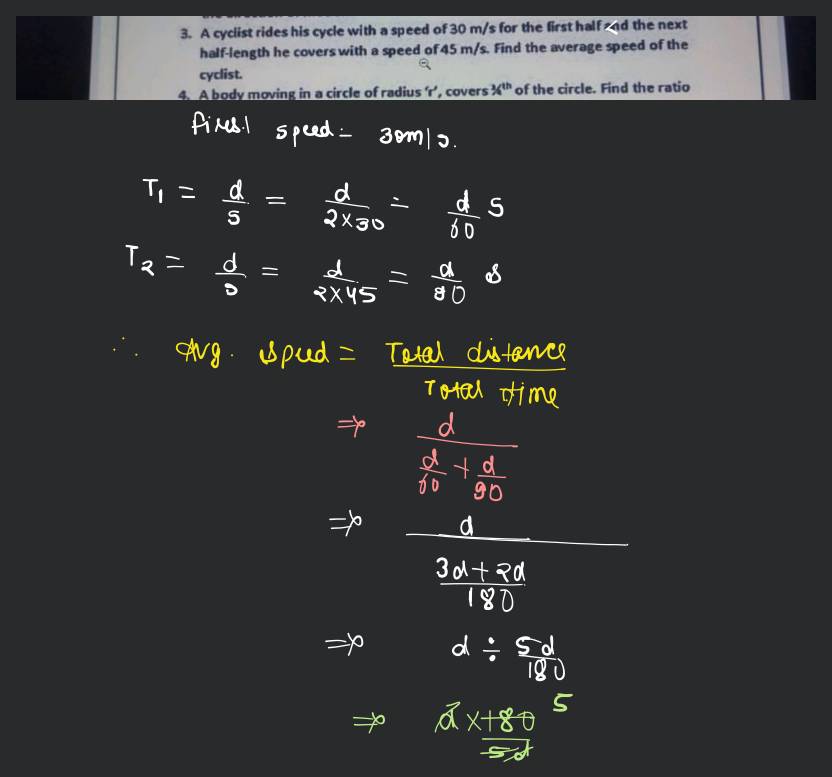 3. A cyclist rides his cycle with a speed of 30 m/s for the first half and the next
half-length he covers with a speed of 45 m/s. Find the average speed of the
cyclist.
4. A body moving in a circle of radius 'r', covers ¾th of the circle. Find the ratio
speed = 30m/s.
T₁ = d/s = d/2×30 = d/60 s
T₂ = d/s = d/2×45 = d/90 s
∴ Avg. speed = Total distance / Total time
⇒ d / (d/60 + d/90)
⇒ d / ((3d+2d)/180)
⇒ d ÷ 5d/180
⇒ d × 180 / 5d 5